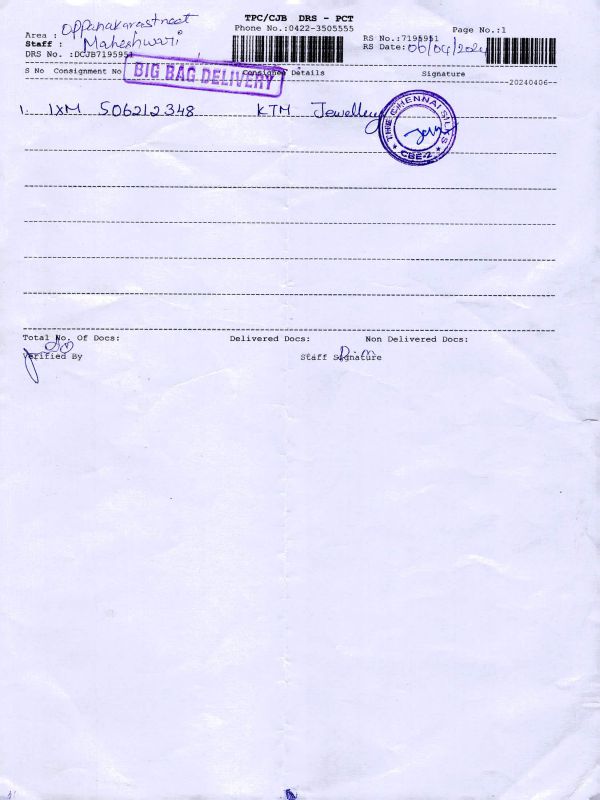 TPC/CJB DRS - PCT
Area : Oppanakarastreet Phone No.:0422-3505555 RS No.:7195951 Page No.:1
Staff : Maheshwari RS Date: 06/04/2024
DRS No. :DCJB7195951
BIG BAG DELIVERY
S No Consignment No Consignee Details Signature
20240406--
1. IXM 506212348 KTM Jewellery
THE CHENNAI SILKS
CBE-2
Total No. Of Docs: Delivered Docs: Non Delivered Docs:
Verified By Staff Signature